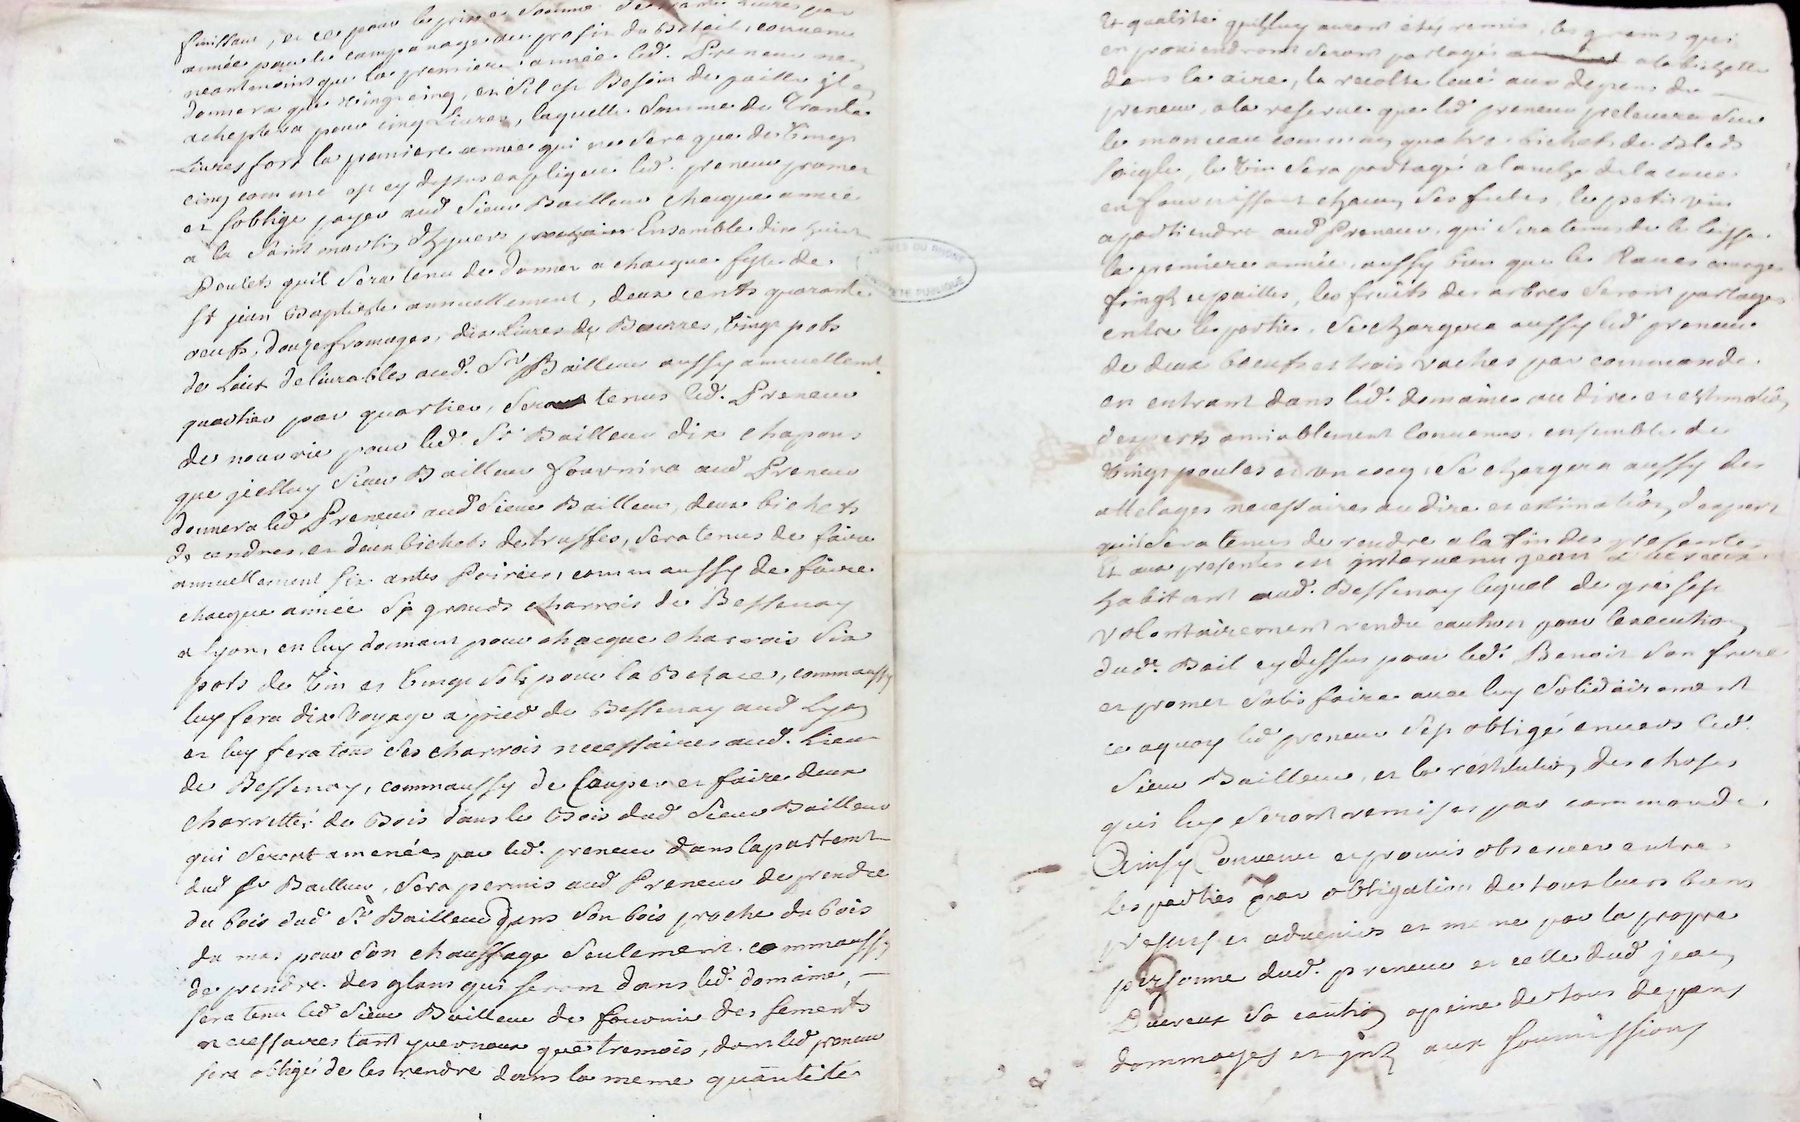 finissant, et ce pour le prix et somme de trante Livres par
année pour le lamage du profit du Betail, convenu
neantmoins que la premiere année led. Preneur ne
donnera que vingt cinq, et s'il est Besoin de paille il en
acheptera pour cinq Livres, laquelle somme de Trante
Livres fort la premiere année qui ne sera que de vingt
cinq comme est cy dessus expliqué led. preneur promet
et s'oblige payer aud. Sieur Bailleur chaque année
a la Saint martin d'hyvers prochain Ensemble dix huit
Poulets quil sera tenu de donner a chacque feste de
St jean Baptiste annuellement, deux cents quarante
oeufs, douze fromages, dix Livres de Beurres, vingt pots
de Lait delivrables aud. Sr Bailleur aussy annuellemt.
quartier par quartier, sera tenus led. Preneur
de nourrir pour led. Sr Bailleur dix chapons
que jcelluy Sieur Bailleur fournira aud. Preneur
donnera led. Preneur aud. Sieur Bailleur, deux bichets
de cendres et deux bichets de truffes, sera tenus de faire
annuellement six antes Poiriers, comm aussy de faire
chacque année six grands charrois de Bessenay
a Lyon, en luy donnant pour chacque charrois six
pots de vin et vingt sols pour la Bichace, commaussy
luy fera dix voyage a pied de Bessenay aud. Lyon
et luy fera tous ses charrois necessaires aud. Lieu
de Bessenay, commaussy de Couper et faire deux
charrettés de Bois dans les Bois dud. Sieur Bailleur
qui seront amenées par led. preneur dans lapartemt
dud. Sr Bailleur, sera permis aud. Preneur de prendre
du bois dud. Sr Bailleur dans son bois proche du bois
du mas pour son chauffage seulement. commaussy
de prendre des glans qui seront dans led. domaine,
sera tenu led. Sieur Bailleur de fournir des sements
necessaires tant yvernaux que tremois, dont led. preneur
sera obligé de les rendre dans la meme quantité
Et qualité quil luy auront étés remis, les grains qui
en proviendront seront partagés a la bichette
dans le aire, la recolte levé aux depens du
preneur, a la reserve que led. preneur prelevera sur
le monceau commun quatre bichets de Bleds
soigle, le vin sera partagé a lanche de la cuve
en fournissant chacun ses futes, le petit vin
apartiendra aud. Preneur, qui sera tenus de le laisser
la premiere année, aussy bien que les Raves
et pailles, les fruits des arbres seront partagés
entre les parties, se chargera aussy led. preneur
de deux boeufs et trois vaches par commande
en entrant dans led. domaine au dire et estimation
d'experts amiablement convenus, ensemble de
vingt poules et un cocq, se chargera aussy des
attelages necessaires au dire et estimation d'expert
quil sera tenus de rendre a la fin des presentes
Et aux presentes est intervenu jean Duvreux
habitant aud. Bessenay lequel de gré s'est
volontairement rendu caution pour l'execution
dud. Bail cy dessus pour led. Benoit son frere
et promet satisfaire avec luy solidairement
ce aquoy led. preneur s'est obligé envers led.
Sieur Bailleur, et la restitution des choses
qui luy seront remises par commande,
Ainsy Convenu et promis observer entre
les parties par obligation de tous leurs biens
presents et advenirs et meme par la propre
personne dud. preneur et celle dud. jean
Duvreux sa caution a peine de tous depens
dommages et aux soumissions